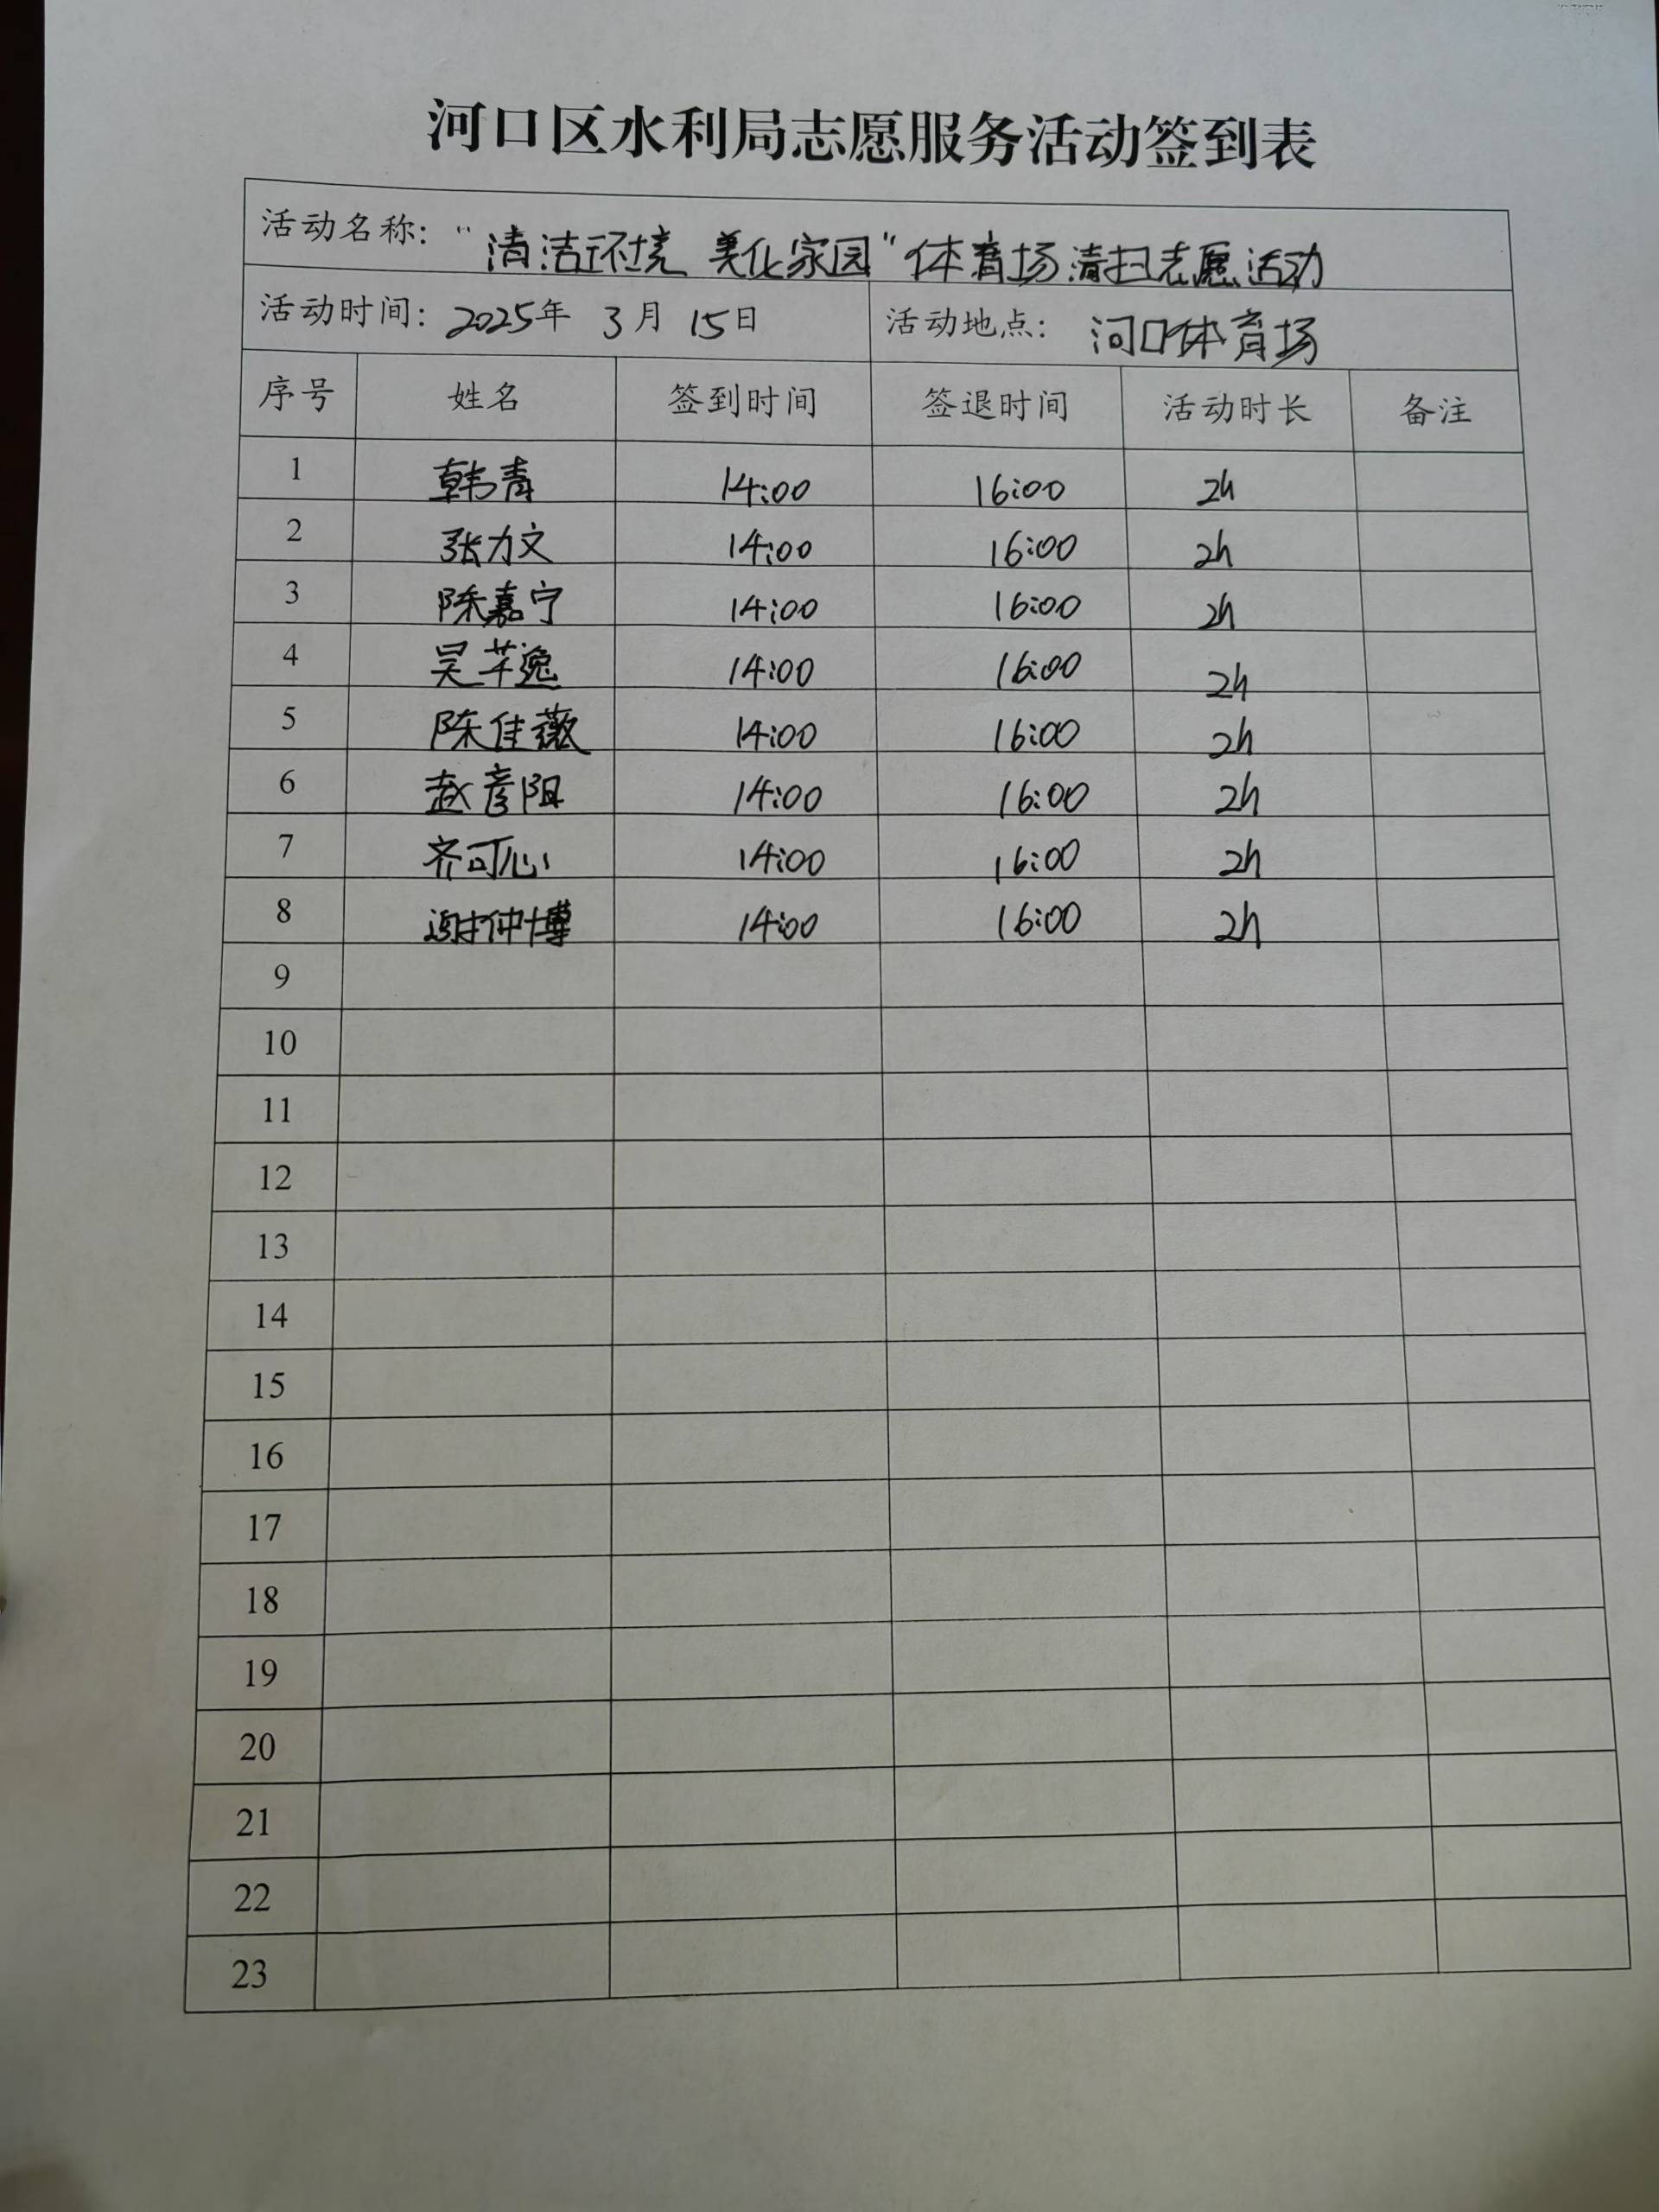 河口区水利局志愿服务活动签到表
活动名称："清洁环境 美化家园"体育场清扫志愿活动
活动时间：2025年 3月 15日 活动地点：河口体育场
序号 姓名 签到时间 签退时间 活动时长 备注
1 韩青 14:00 16:00 2h
2 张力文 14:00 16:00 2h
3 陈嘉宁 14:00 16:00 2h
4 吴芊逸 14:00 16:00 2h
5 陈佳薇 14:00 16:00 2h
6 赵彦阳 14:00 16:00 2h
7 齐可心 14:00 16:00 2h
8 谢仲博 14:00 16:00 2h
9
10
11
12
13
14
15
16
17
18
19
20
21
22
23